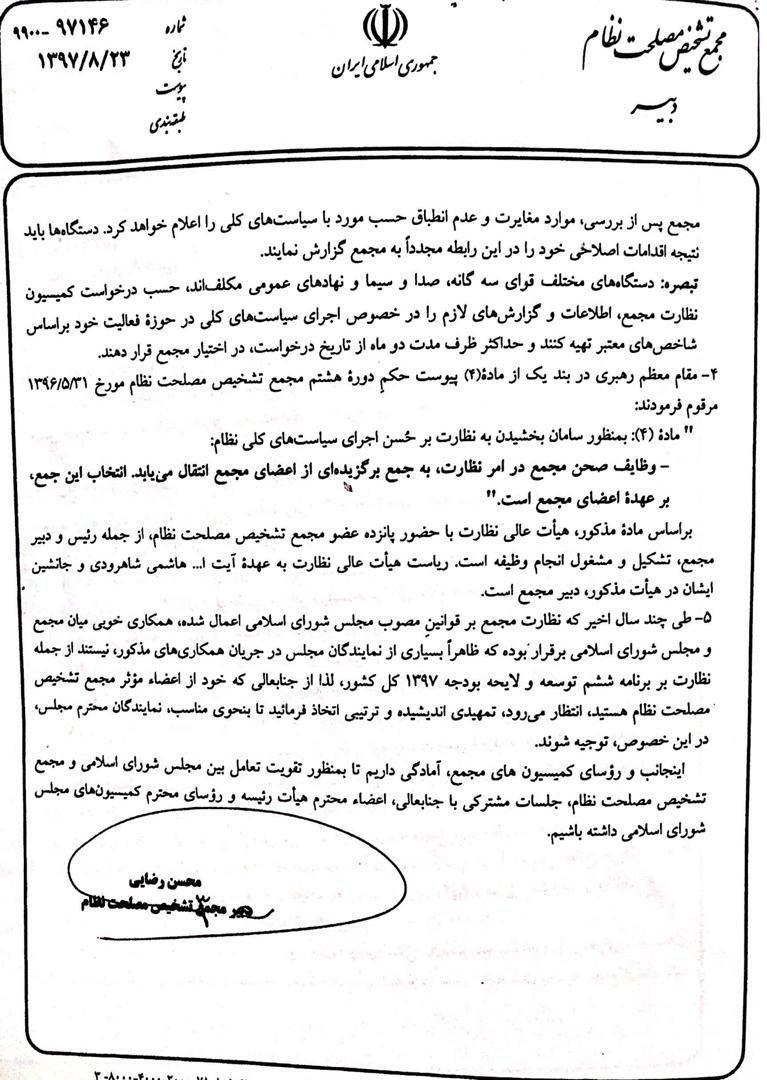 مجمع تشخیص مصلحت نظام
دبیر
جمهوری اسلامی ایران
شماره ۹۷۱۴۶-۹۹۰۰
تاریخ ۱۳۹۷/۸/۲۳
پیوست
طبقه‌بندی
مجمع پس از بررسی، موارد مغایرت و عدم انطباق حسب مورد با سیاست‌های کلی را اعلام خواهد کرد. دستگاه‌ها باید
نتیجه اقدامات اصلاحی خود را در این رابطه مجدداً به مجمع گزارش نمایند.
تبصره: دستگاه‌های مختلف قوای سه گانه، صدا و سیما و نهادهای عمومی مکلف‌اند، حسب درخواست کمیسیون
نظارت مجمع، اطلاعات و گزارش‌های لازم را در خصوص اجرای سیاست‌های کلی در حوزهٔ فعالیت خود براساس
شاخص‌های معتبر تهیه کنند و حداکثر ظرف مدت دو ماه از تاریخ درخواست، در اختیار مجمع قرار دهند.
۴- مقام معظم رهبری در بند یک از مادهٔ(۴) پیوست حکمِ دورهٔ هشتم مجمع تشخیص مصلحت نظام مورخ ۱۳۹۶/۵/۳۱
مرقوم فرمودند:
" مادهٔ (۴): بمنظور سامان بخشیدن به نظارت بر حُسن اجرای سیاست‌های کلی نظام:
- وظایف صحن مجمع در امر نظارت، به جمع برگزیده‌ای از اعضای مجمع انتقال می‌یابد. انتخاب این جمع،
بر عهدهٔ اعضای مجمع است."
براساس مادهٔ مذکور، هیأت عالی نظارت با حضور پانزده عضو مجمع تشخیص مصلحت نظام، از جمله رئیس و دبیر
مجمع، تشکیل و مشغول انجام وظیفه است. ریاست هیأت عالی نظارت به عهدهٔ آیت ا... هاشمی شاهرودی و جانشین
ایشان در هیأت مذکور، دبیر مجمع است.
۵- طی چند سال اخیر که نظارت مجمع بر قوانینِ مصوب مجلس شورای اسلامی اعمال شده، همکاری خوبی میان مجمع
و مجلس شورای اسلامی برقرار بوده که ظاهراً بسیاری از نمایندگان مجلس در جریان همکاری‌های مذکور، نیستند از جمله
نظارت بر برنامه ششم توسعه و لایحه بودجه ۱۳۹۷ کل کشور، لذا از جنابعالی که خود از اعضاء مؤثر مجمع تشخیص
مصلحت نظام هستید، انتظار می‌رود، تمهیدی اندیشیده و ترتیبی اتخاذ فرمائید تا بنحوی مناسب، نمایندگان محترم مجلس،
در این خصوص، توجیه شوند.
اینجانب و رؤسای کمیسیون های مجمع، آمادگی داریم تا بمنظور تقویت تعامل بین مجلس شورای اسلامی و مجمع
تشخیص مصلحت نظام، جلسات مشترکی با جنابعالی، اعضاء محترم هیأت رئیسه و رؤسای محترم کمیسیون‌های مجلس
شورای اسلامی داشته باشیم.
محسن رضایی
دبیر مجمع تشخیص مصلحت نظام